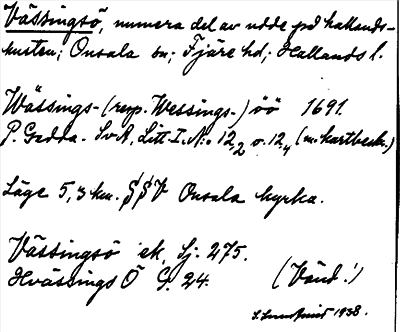 Vässingsö, numera del av udde på hallands-
kusten; Onsala sn; Fjäre hd; Hallands l.
Wässings- (resp. Wessings-) öö 1691.
P. Gedda. SvA, Litt I. No 12₂ o. 12₄ (m. kartbeskr.)
Läge 5,3 km. SSV Onsala kyrka.
Vässingsö ek. Sj. 275.
Hvässings Ö G. 24. (Vänd!)
1938.